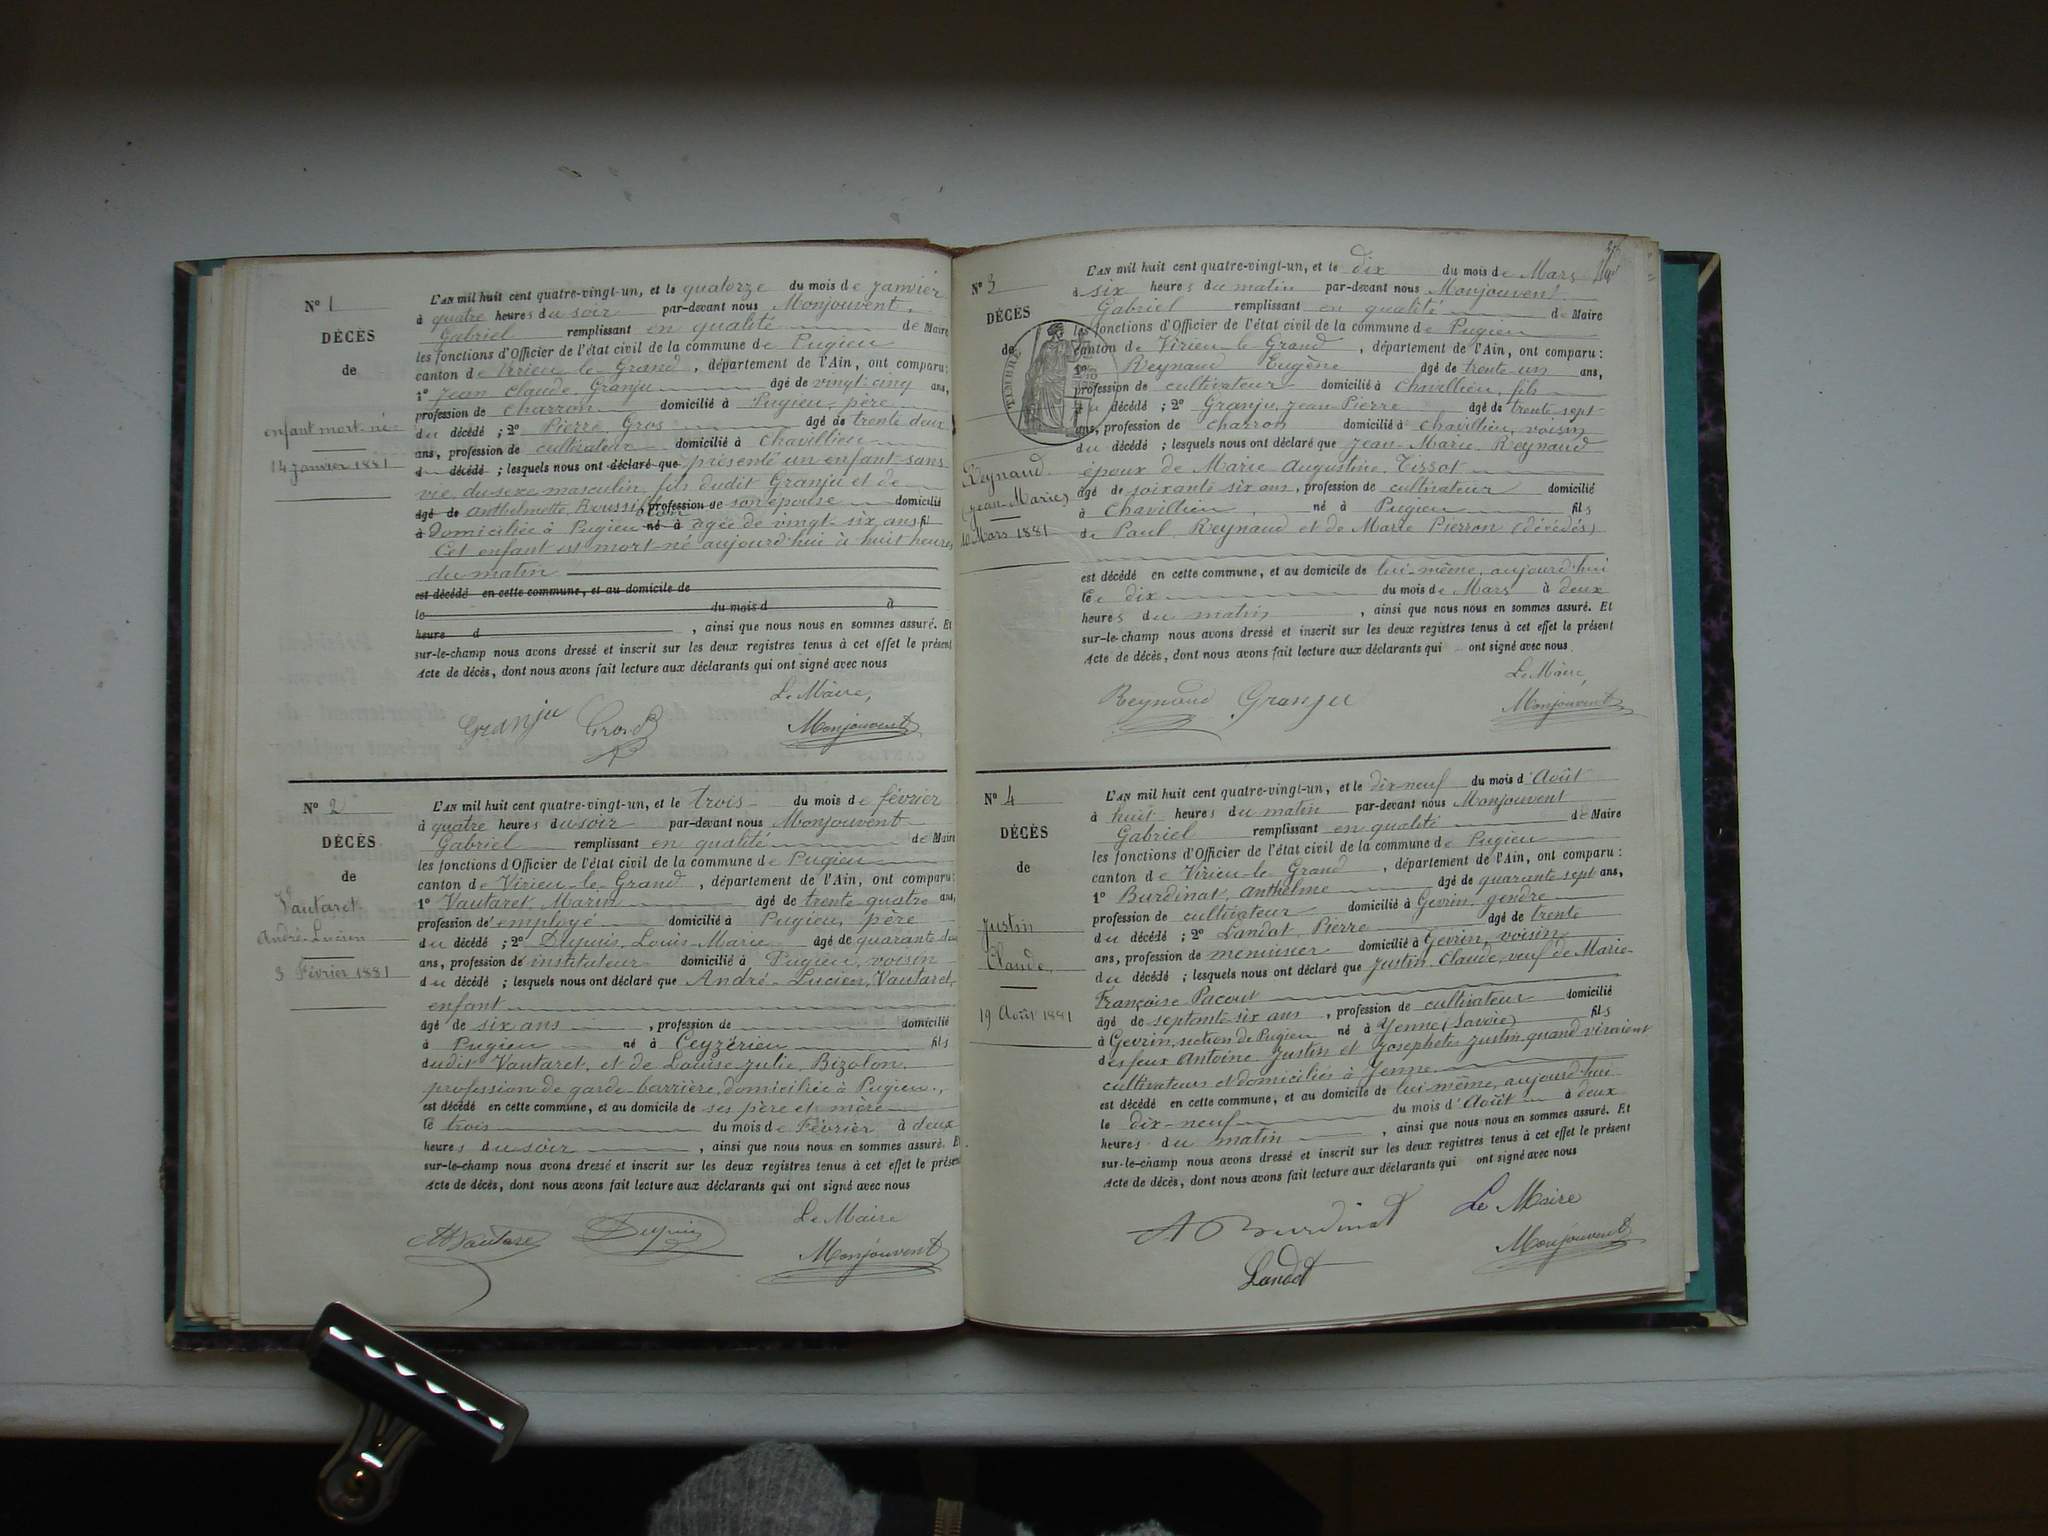 N° 1
DÉCÈS
de
enfant mort-né
14 Janvier 1881
L'AN mil huit cent quatre-vingt-un, et le quatorze du mois de Janvier
à quatre heures du soir par-devant nous Monjouvent,
Gabriel remplissant en qualité de Maire
les fonctions d'Officier de l'état civil de la commune de Pugieu
canton de Virieu-le-Grand, département de l'Ain, ont comparu:
1° Jean Claude Granju âgé de vingt-cinq ans,
profession de charron domicilié à Pugieu, père
du décédé ; 2° Pierre Gros âgé de trente deux
ans, profession de cultivateur domicilié à Chavillieu
d décédé ; lesquels nous ont déclaré que présenté un enfant sans
vie, du sexe masculin, fils dudit Granju et de
âgé de Anthelmette Roussillon profession de son épouse domicilié
à Domiciliée à Pugieu né à âgée de vingt-six ans, fil
Cet enfant est mort-né aujourd'hui à huit heures
du matin
est décédé en cette commune, et au domicile de
le du mois d à
heure d , ainsi que nous nous en sommes assuré. Et
sur-le-champ nous avons dressé et inscrit sur les deux registres tenus à cet effet le présent
Acte de décès, dont nous avons fait lecture aux déclarants qui ont signé avec nous
Le Maire,
Granju Gros Monjouvent
N° 2
DÉCÈS
de
Vautaret
André-Lucien
3 Février 1881
L'AN mil huit cent quatre-vingt-un, et le trois du mois de février
à quatre heures du soir par-devant nous Monjouvent
Gabriel remplissant en qualité de Maire
les fonctions d'Officier de l'état civil de la commune de Pugieu
canton de Virieu-le-Grand, département de l'Ain, ont comparu:
1° Vautaret, Marin âgé de trente-quatre ans,
profession d'employé domicilié à Pugieu, père
du décédé ; 2° Dupuis, Louis-Marie âgé de quarante
ans, profession d'instituteur domicilié à Pugieu, voisin
du décédé ; lesquels nous ont déclaré que André-Lucien, Vautaret,
enfant
âgé de six ans , profession de domicilié
à Pugieu né à Ceyzérieu fils
dudit Vautaret, et de Louise Julie, Bizolon,
profession de garde-barrière, domiciliée à Pugieu,
est décédé en cette commune, et au domicile de ses père et mère
le trois du mois de Février à deux
heures du soir , ainsi que nous nous en sommes assuré. Et
sur-le-champ nous avons dressé et inscrit sur les deux registres tenus à cet effet le présent
Acte de décès, dont nous avons fait lecture aux déclarants qui ont signé avec nous
Le Maire
Vautare Dupuis Monjouvent
N° 3
DÉCÈS
de
TIMBRE
Reynaud
(Jean-Marie)
10 Mars 1881
L'AN mil huit cent quatre-vingt-un, et le dix du mois de Mars
à six heures du matin par-devant nous Monjouvent
Gabriel remplissant en qualité de Maire
les fonctions d'Officier de l'état civil de la commune de Pugieu
canton de Virieu-le-Grand , département de l'Ain, ont comparu:
1° Reynaud Eugène âgé de trente un ans,
profession de cultivateur domicilié à Chavillieu, fils
du décédé ; 2° Granju, Jean-Pierre âgé de trente-sept
ans, profession de charron domicilié à Chavillieu, voisin
du décédé ; lesquels nous ont déclaré que Jean-Marie Reynaud
époux de Marie Augustine Tissot
âgé de soixante six ans, profession de cultivateur domicilié
à Chavillieu, né à Pugieu fils
de Paul Reynaud et de Marie Pierron (décédés)
est décédé en cette commune, et au domicile de lui-même, aujourd'hui
le dix du mois de Mars à deux
heures du matin , ainsi que nous nous en sommes assuré. Et
sur-le-champ nous avons dressé et inscrit sur les deux registres tenus à cet effet le présent
Acte de décès, dont nous avons fait lecture aux déclarants qui ont signé avec nous
Le Maire,
Reynaud Granju Monjouvent
N° 4
DÉCÈS
de
Justin
Claude,
19 Août 1881
L'AN mil huit cent quatre-vingt-un, et le dix-neuf du mois d'Août
à huit heures du matin par-devant nous Monjouvent
Gabriel remplissant en qualité de Maire
les fonctions d'Officier de l'état civil de la commune de Pugieu
canton de Virieu-le-Grand , département de l'Ain, ont comparu:
1° Burdinat, Anthelme âgé de quarante sept ans,
profession de cultivateur domicilié à Gevrin, gendre
du décédé ; 2° Landat, Pierre âgé de trente
ans, profession de menuisier domicilié à Gevrin, voisin
du décédé ; lesquels nous ont déclaré que Justin, Claude, veuf de Marie-
Françoise Pacout
âgé de septante-six ans , profession de cultivateur domicilié
à Gevrin, section de Pugieu né à Yenne (Savoie) fils
des feux Antoine Justin et Josephete Justin quand vivaient
cultivateurs et domiciliés à Yenne
est décédé en cette commune, et au domicile de lui-même, aujourd'hui
le dix-neuf du mois d'Août à deux
heures du matin , ainsi que nous nous en sommes assuré. Et
sur-le-champ nous avons dressé et inscrit sur les deux registres tenus à cet effet le présent
Acte de décès, dont nous avons fait lecture aux déclarants qui ont signé avec nous
A Burdinat Le Maire
Landat Monjouvent